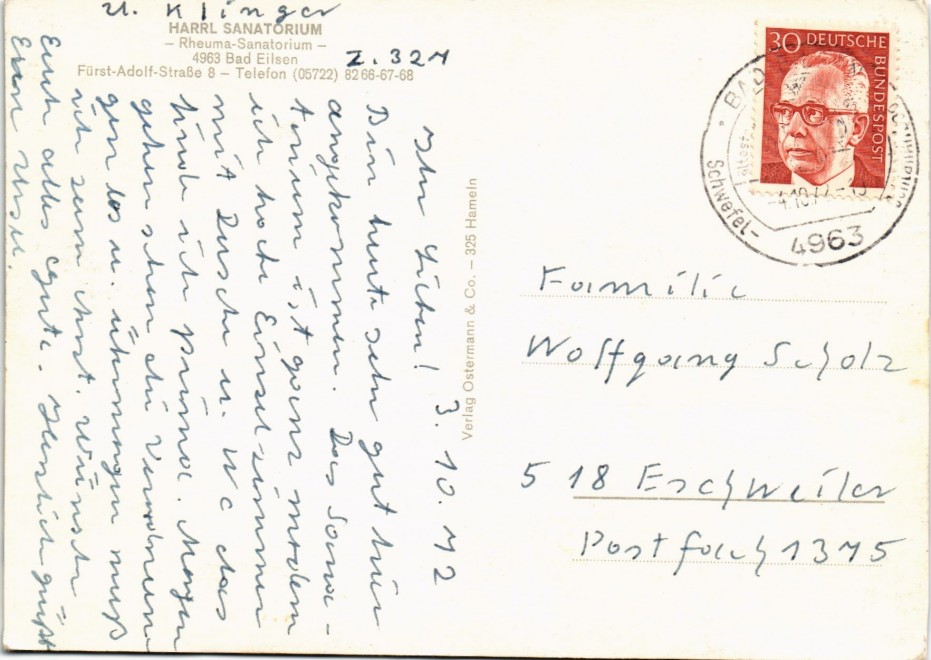 U. Klinger
HARRL SANATORIUM
– Rheuma-Sanatorium –
4963 Bad Eilsen
Fürst-Adolf-Straße 8 – Telefon (05722) 82 66-67-68
Z. 327
3. 10. 72
Ihr Lieben!
Bin heute sehr gut hier
angekommen. Das Sana-
torium ist ganz modern
ich habe Einzelzimmer
mit Dusche u. WC das
finde ich prima. Morgen
gehen schon die
gen los u. übermorgen muß
ich zum Arzt. Wünsche
Euch alles Gute. Herzlich grüßt
Verlag Ostermann & Co. – 325 Hameln
30 DEUTSCHE
BUNDESPOST
BAD
Schwefel-
4.10.72
4963
Familie
Wolfgang Scholz
518 Eschweiler
Postfach 1375